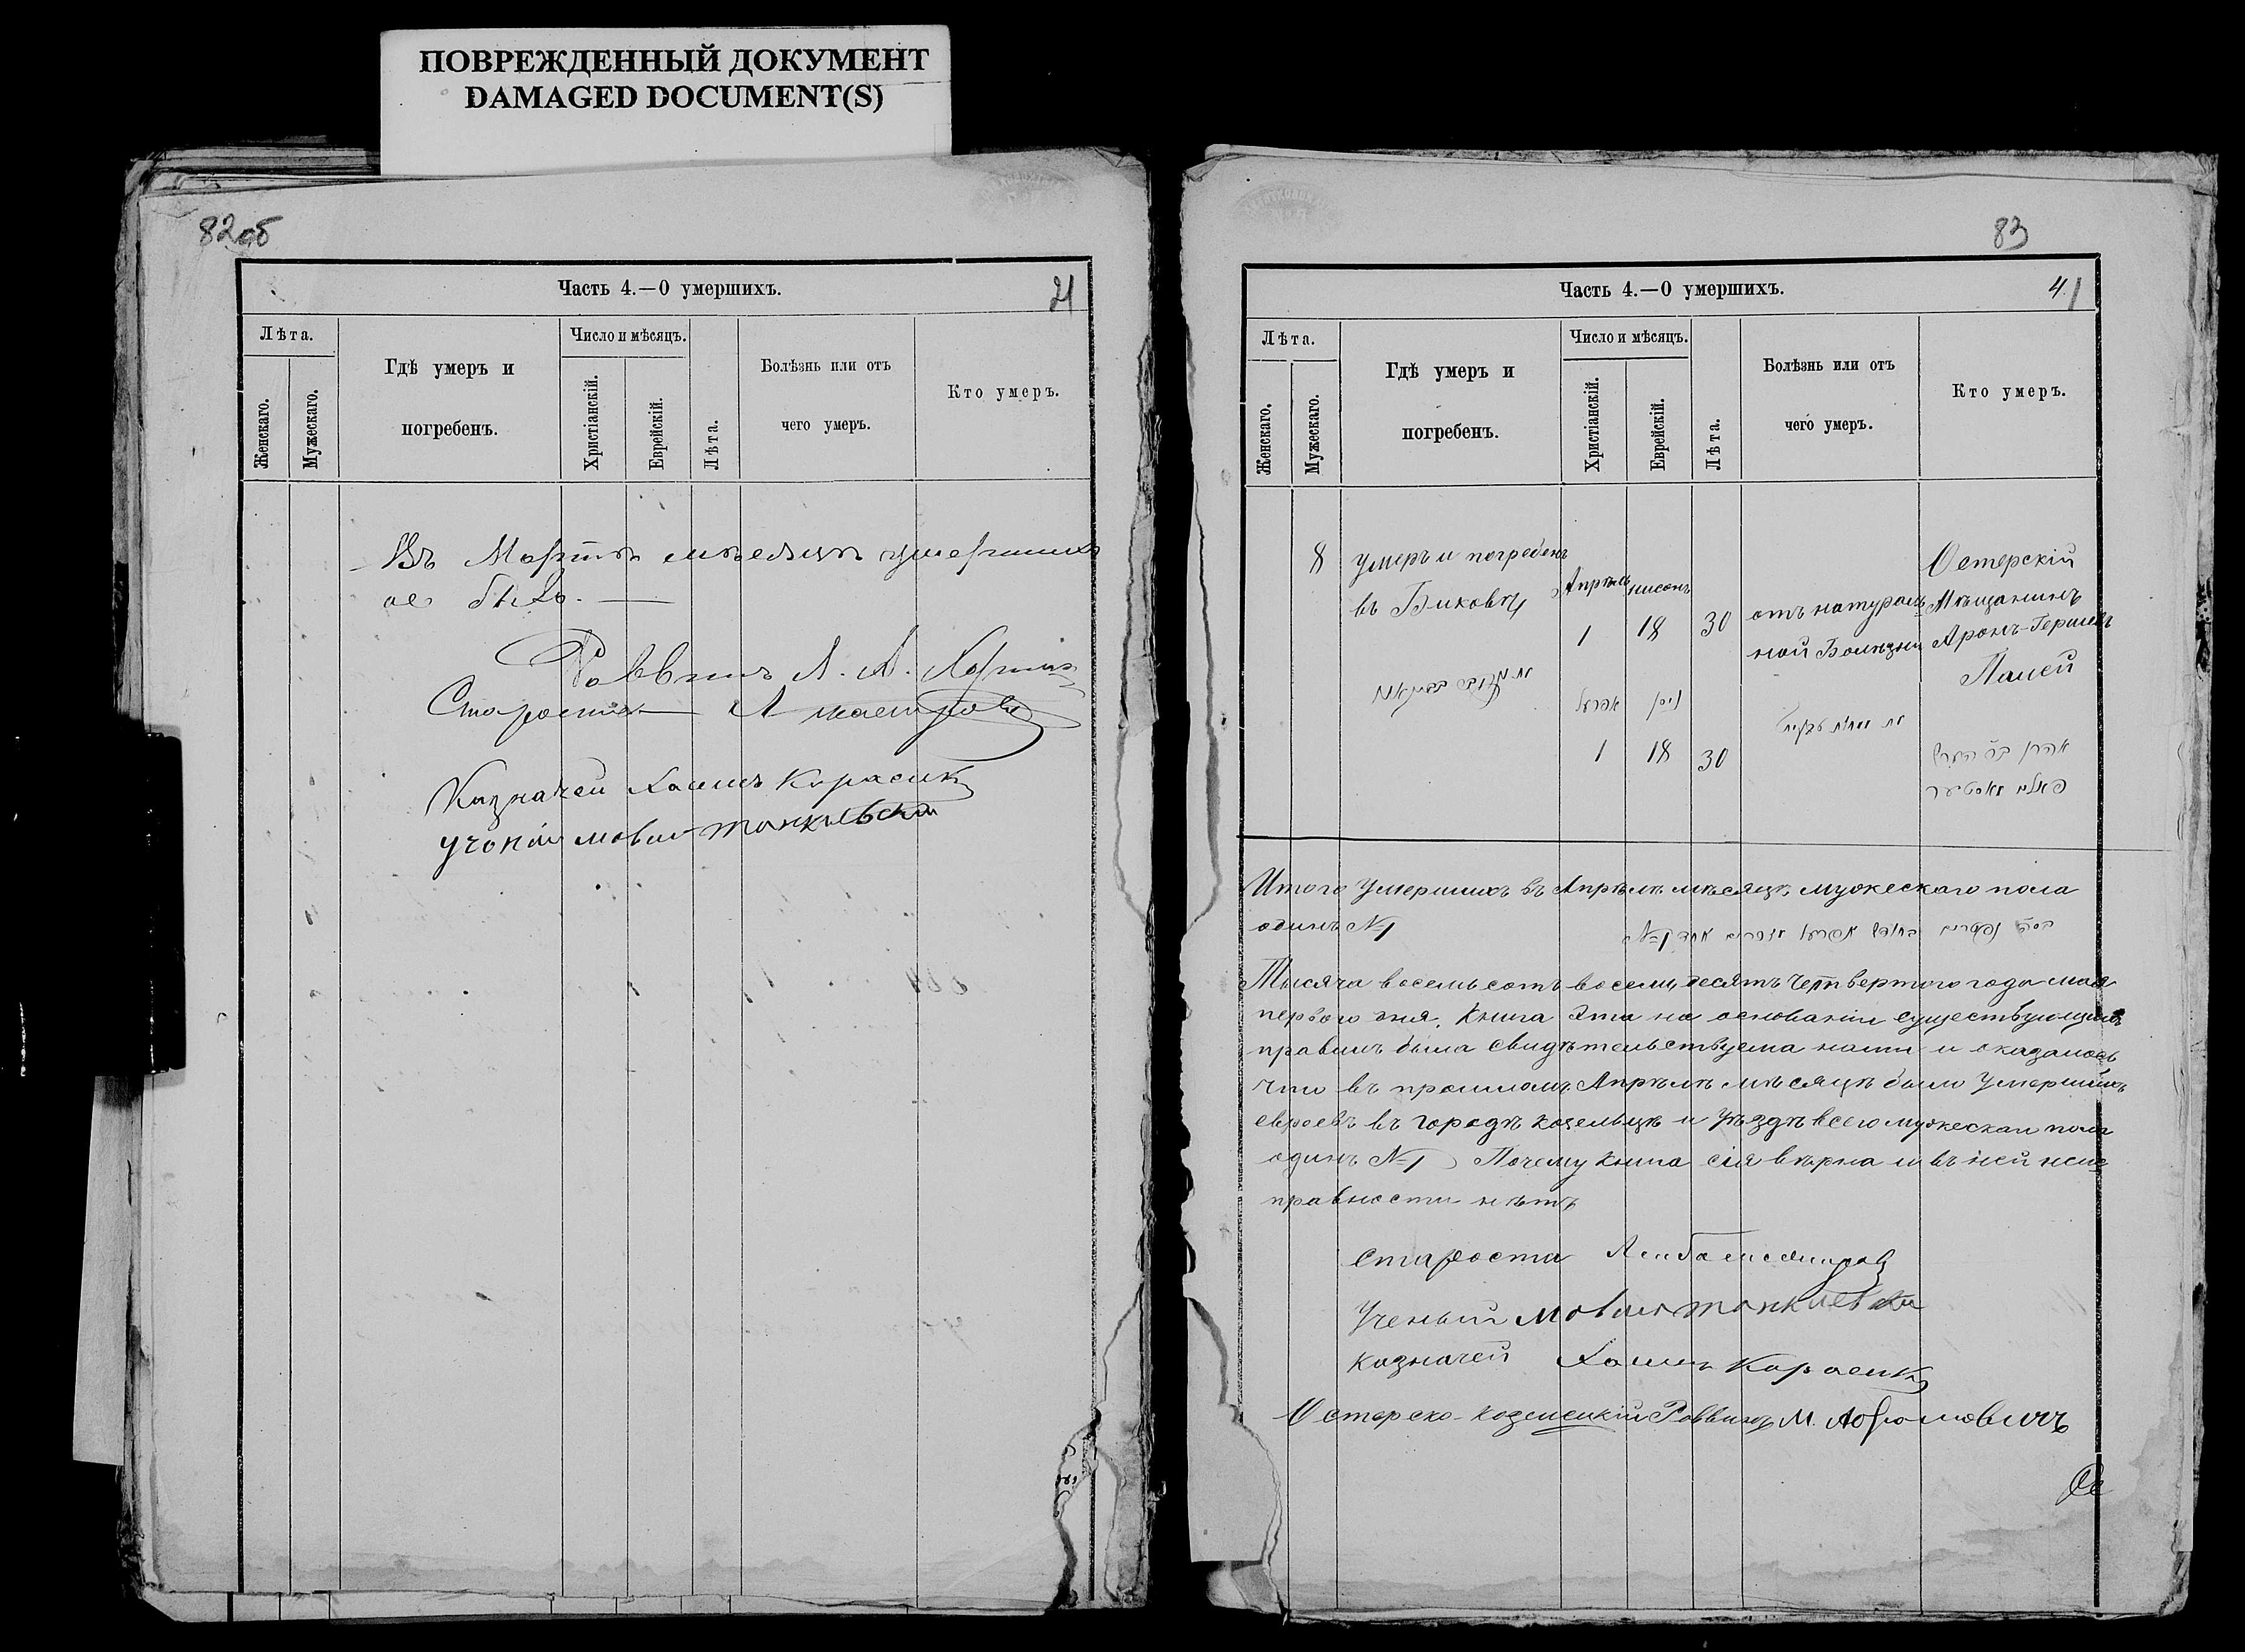 ПОВРЕЖДЕННЫЙ ДОКУМЕНТ
DAMAGED DOCUMENT(S)
82об
Часть 4.—О умершихъ.
Лѣта.
Женскаго.
Мужескаго.
Гдѣ умеръ и
погребенъ.
Число и мѣсяцъ.
Христіанскій.
Еврейскій.
Лѣта.
Болѣзнь или отъ
чего умеръ.
Кто умеръ.
Въ Мартѣ мѣсяцѣ умершихъ
не было.
Раввинъ
Староста
Казначей Хаимъ Карасик
83
Часть 4.—О умершихъ.
41
Лѣта.
Женскаго.
Мужескаго.
Гдѣ умеръ и
погребенъ.
Число и мѣсяцъ.
Христіанскій.
Еврейскій.
Лѣта.
Болѣзнь или отъ
чего умеръ.
Кто умеръ.
8
умеръ и погребенъ
въ
Апрѣль
1
нисонъ
18
30
отъ натураль
ной Болѣзни
Остерскій
Мѣщанинъ
Аронъ-Гершъ
Палей
אפריל
1
ניסן
18
30
אהרן
Итого Умершихъ въ Апрѣлѣ мѣсяцѣ мужескаго пола
одинъ №1
Тысяча восемьсотъ восемьдесятъ Четвертого года мая
первого дня. Книга эта на основаніи существующихъ
правилъ была свидѣтельствуема нами и оказалось
что въ прошломъ Апрѣлѣ мѣсяцѣ было Умершихъ
евреевъ въ городѣ козельцѣ и уѣздѣ всего мужескаго пола
одинъ №1 Почему книга сія вѣрна и въ ней неис
правности нѣтъ
староста
Ученый
казначей Хаимъ Карасикъ
Остерско-козелецкій Раввинъ М. Абрамовичъ